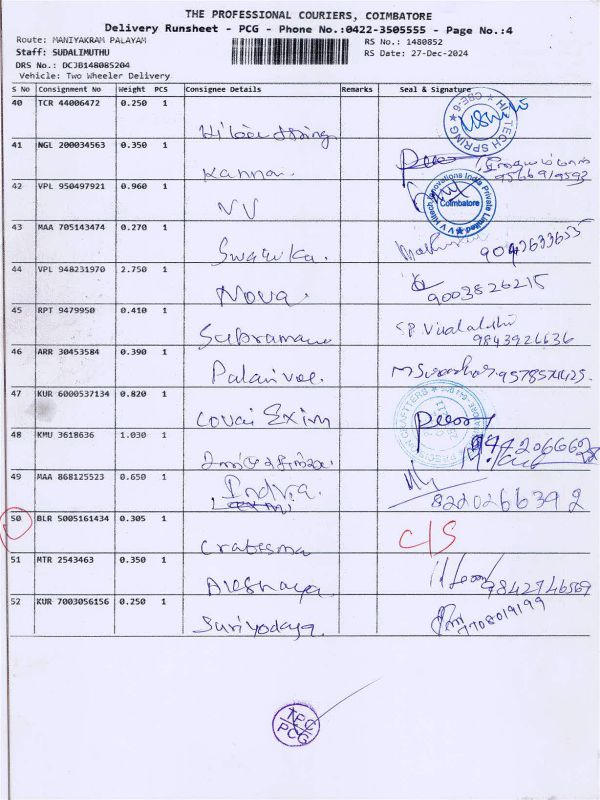 THE PROFESSIONAL COURIERS, COIMBATORE
Delivery Runsheet - PCG - Phone No.:0422-3505555 - Page No.:4
Route: MANIYAKRAM PALAYAM
RS No.: 1480852
Staff: SUDALIMUTHU
RS Date: 27-Dec-2024
DRS No.: DCJB148085204
Vehicle: Two Wheeler Delivery
S No Consignment No Weight PCS Consignee Details Remarks Seal & Signature
40 TCR 44006472 0.250 1
HI-TECH SPRING CBE-6
41 NGL 200034563 0.350 1 Kanna
42 VPL 950497921 0.960 1 VV
V V Hitech Innovations India Private Limited
Coimbatore
43 MAA 705143474 0.270 1 Swarika. 9042633655
44 VPL 948231970 2.750 1 Nova. 9003826215
45 RPT 9479950 0.410 1 9843926636
46 ARR 30453584 0.390 1 Palanivel.
47 KUR 6000537134 0.820 1 Covai Exim
48 KMU 3618636 1.030 1
49 MAA 868125523 0.650 1 Indria. 8220266392
50 BLR 5005161434 0.305 1 C/S
51 MTR 2543463 0.350 1 Akshaya 9842746569
52 KUR 7003056156 0.250 1 Suriyodaya. 7708019199
TPC
PCG